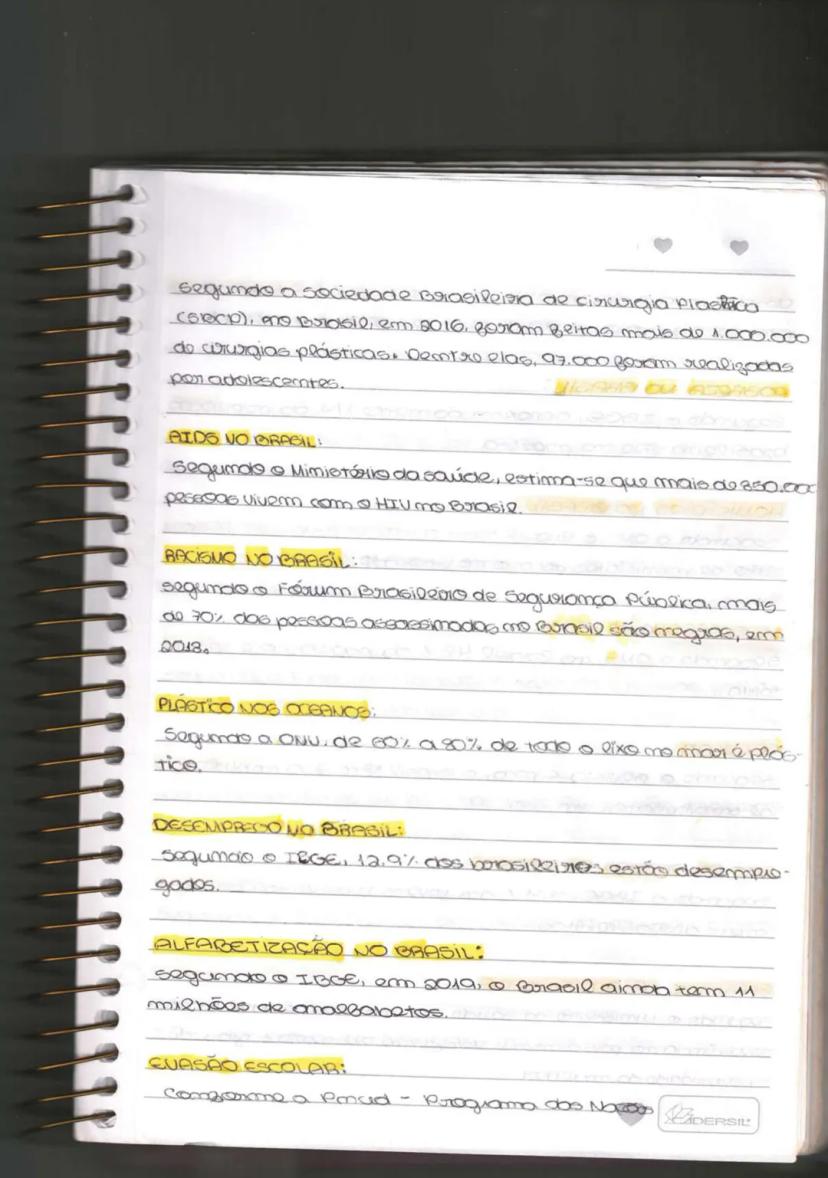 Segundo a Sociedade Brasileira de cirurgia Plastica
(SBCP), no Brasil, em 2016, foram feitas mais de 1.000.000
de cirurgias plásticas. Dentre elas, 97.000 foram realizadas
por adolescentes.
AIDS NO BRASIL:
Segundo o Ministério da saúde, estima-se que mais de 850.000
pessoas vivem com o HIV no Brasil.
RACISMO NO BRASIL:
segundo o Fórum Brasileiro de Segurança Pública, mais
de 70% das pessoas assassinadas no Brasil são negras, em
2018.
PLÁSTICO NOS OCEANOS:
Segundo a ONU, de 60% a 80% de todo o lixo no mar é plás-
tico.
DESEMPREGO NO BRASIL:
Segundo o IBGE, 12,9% dos brasileiros estão desempre-
gados.
ALFABETIZAÇÃO NO BRASIL:
segundo o IBGE, em 2019, o Brasil ainda tem 11
milhões de analfabetos.
EVASÃO ESCOLAR:
Conforme a Pnud - Programa das Nações
CADERSIL